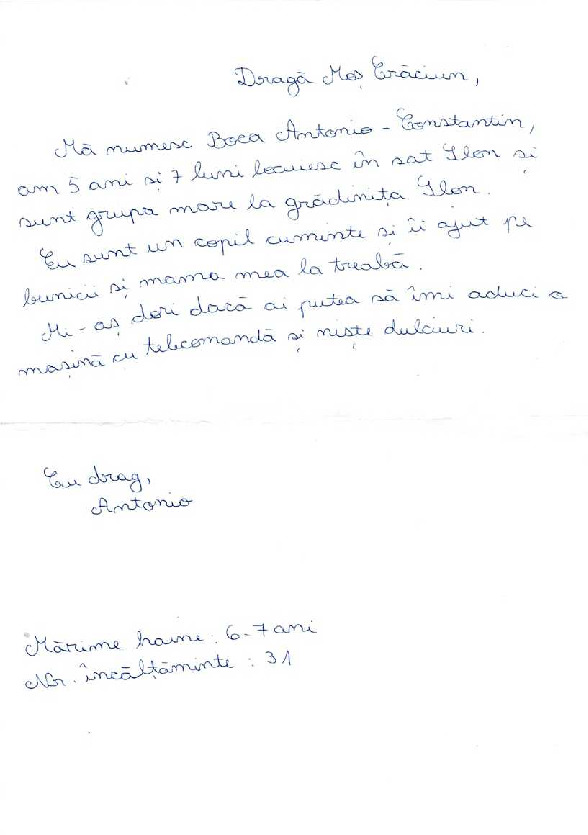 Dragă Moș Crăciun,
Mă numesc Boca Antonio - Constantin,
am 5 ani și 7 luni locuiesc în sat Ilon și
sunt grupa mare la grădinița Ilon.
Eu sunt un copil cuminte și îi ajut pe
bunicii și mama mea la treabă.
Mi-aș dori dacă ai putea să îmi aduci o
mașină cu telecomandă și niște dulciuri.
Cu drag,
Antonio
Mărime haine: 6-7 ani
Nr. încălțăminte: 31